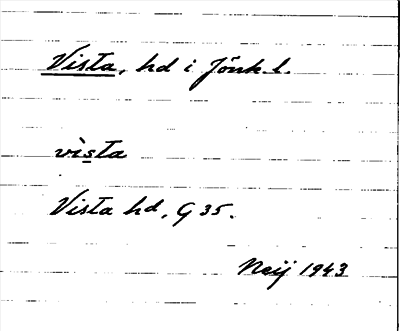 Vista, hd i Jönk. l.
vìsta
Vista hd, G 35.
Neij 1943